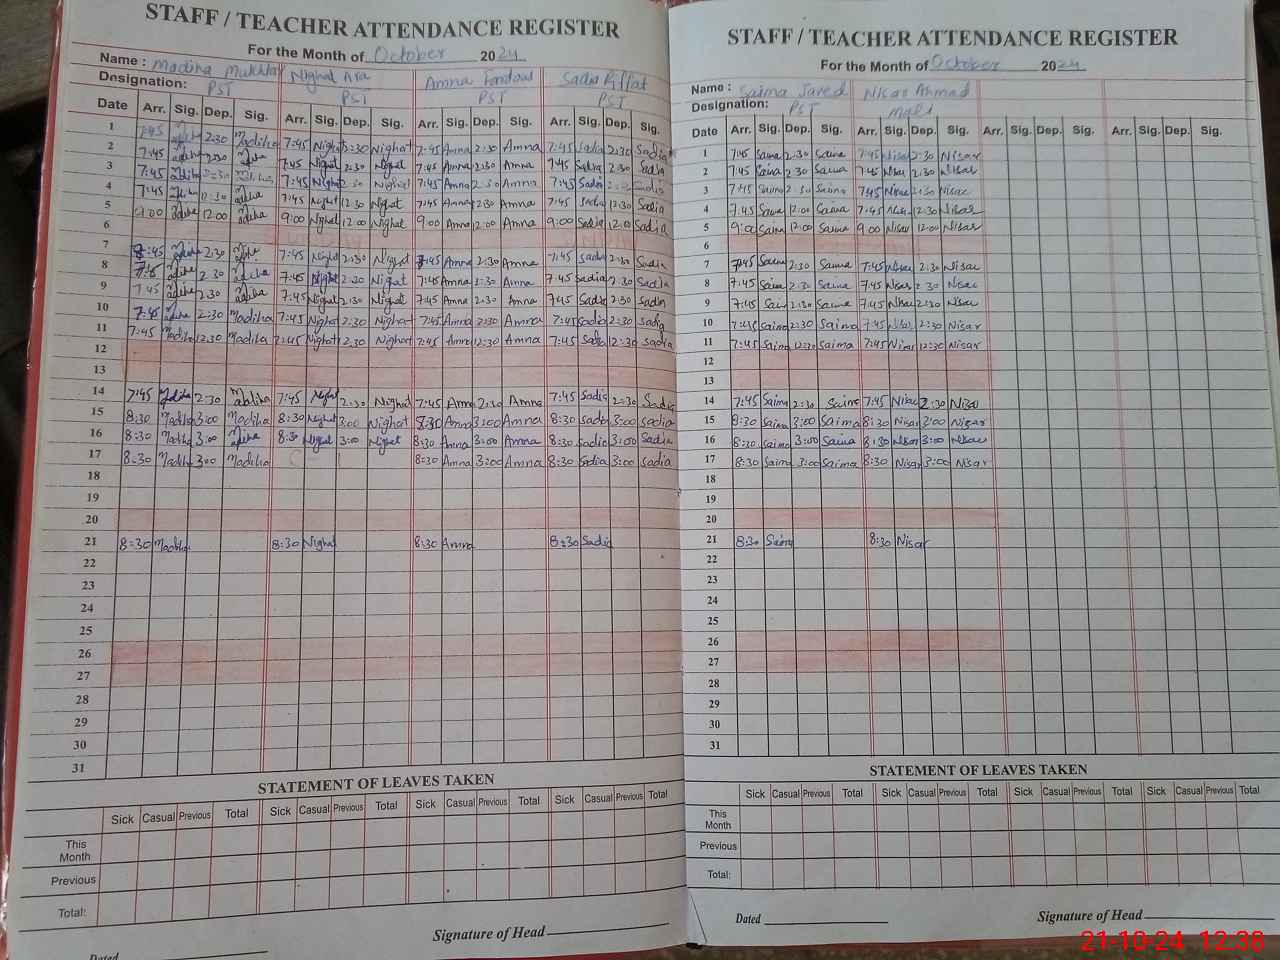 STAFF / TEACHER ATTENDANCE REGISTER
For the Month of October 2024
Name : Madiha Mukhtar Nighat Ara Amna Sadia Riffat
Designation: PST PST PST PST
Date Arr. Sig. Dep. Sig. Arr. Sig. Dep. Sig. Arr. Sig. Dep. Sig. Arr. Sig. Dep. Sig.
1 7:45 2:30 Madiha 7:45 Nighat 2:30 Nighat 7:45 Amna 2:30 Amna 7:45 Sadia 2:30 Sadia
2 7:45 adiha 2:30 7:45 Nighat 2:30 Nighat 7:45 Amna 2:30 Amna 7:45 Sadia 2:30 Sadia
3 7:45 2:30 7:45 Nighat 2:30 Nighat 7:45 Amna 2:30 Amna 7:45 Sadia Sadia
4 7:45 12:30 adiha 7:45 Nighat 12:30 Nighat 7:45 Amna 12:30 Amna 7:45 Sadia 12:30 Sadia
5 9:00 adiha 12:00 adiha 9:00 Nighat 12:00 Nighat 9:00 Amna 12:00 Amna 9:00 Sadia 12:00 Sadia
6
7 7:45 2:30 7:45 Nighat 2:30 Nighat 7:45 Amna 2:30 Amna 7:45 Sadia 2:30 Sadia
8 7:45 adiha 2:30 adiha 7:45 Nighat 2:30 Nighat 7:45 Amna 2:30 Amna 7:45 Sadia 2:30 Sadia
9 7:45 adiha 2:30 adiha 7:45 Nighat 2:30 Nighat 7:45 Amna 2:30 Amna 7:45 Sadia 2:30 Sadia
10 7:45 2:30 Madiha 7:45 Nighat 2:30 Nighat 7:45 Amna 2:30 Amna 7:45 Sadia 2:30 Sadia
11 7:45 Madiha 12:30 Madiha 7:45 Nighat 12:30 Nighat 7:45 Amna 12:30 Amna 7:45 Sadia 12:30 Sadia
12
13
14 7:45 Madiha 2:30 Madiha 7:45 Nighat 2:30 Nighat 7:45 Amna 2:30 Amna 7:45 Sadia 2:30 Sadia
15 8:30 Madiha 3:00 Madiha 8:30 Nighat 3:00 Nighat 8:30 Amna 3:00 Amna 8:30 Sadia 3:00 Sadia
16 8:30 Madiha 3:00 8:30 Nighat 3:00 Nighat 8:30 Amna 3:00 Amna 8:30 Sadia 3:00 Sadia
17 8:30 Madiha 3:00 Madiha 8:30 Amna 3:00 Amna 8:30 Sadia 3:00 Sadia
18
19
20
21 8:30 Madiha 8:30 Nighat 8:30 Amna 8:30 Sadia
22
23
24
25
26
27
28
29
30
31
STATEMENT OF LEAVES TAKEN
Sick Casual Previous Total Sick Casual Previous Total Sick Casual Previous Total Sick Casual Previous Total
This
Month
Previous
Total:
Signature of Head
Dated
STAFF / TEACHER ATTENDANCE REGISTER
For the Month of October 2024
Name : Saima Javed Nisar Ahmad
Designation: PST Mali
Date Arr. Sig. Dep. Sig. Arr. Sig. Dep. Sig. Arr. Sig. Dep. Sig. Arr. Sig. Dep. Sig.
1 7:45 Saima 2:30 Saima 7:45 Nisar 2:30 Nisar
2 7:45 Saima 2:30 Saima 7:45 Nisar 2:30 Nisar
3 7:45 Saima 2:30 Saima 7:45 Nisar 2:30 Nisar
4 7:45 Saima 12:00 Saima 7:45 Nisar 12:30 Nisar
5 9:00 Saima 12:00 Saima 9:00 Nisar 12:00 Nisar
6
7 7:45 Saima 2:30 Saima 7:45 Nisar 2:30 Nisar
8 7:45 Saima 2:30 Saima 7:45 Nisar 2:30 Nisar
9 7:45 Sai 2:30 Saima 7:45 Nisar 2:30 Nisar
10 7:45 Saima 2:30 Saima 7:45 Nisar 2:30 Nisar
11 7:45 Saima 12:30 Saima 7:45 Nisar 12:30 Nisar
12
13
14 7:45 Saima 2:30 Saima 7:45 Nisar 2:30 Nisar
15 8:30 Saima 3:00 Saima 8:30 Nisar 3:00 Nisar
16 8:30 Saima 3:00 Saima 8:30 Nisar 3:00 Nisar
17 8:30 Saima 3:00 Saima 8:30 Nisar 3:00 Nisar
18
19
20
21 8:30 Saima 8:30 Nisar
22
23
24
25
26
27
28
29
30
31
STATEMENT OF LEAVES TAKEN
Sick Casual Previous Total Sick Casual Previous Total Sick Casual Previous Total Sick Casual Previous Total
This
Month
Previous
Total:
Dated Signature of Head
21-10-24 12:38